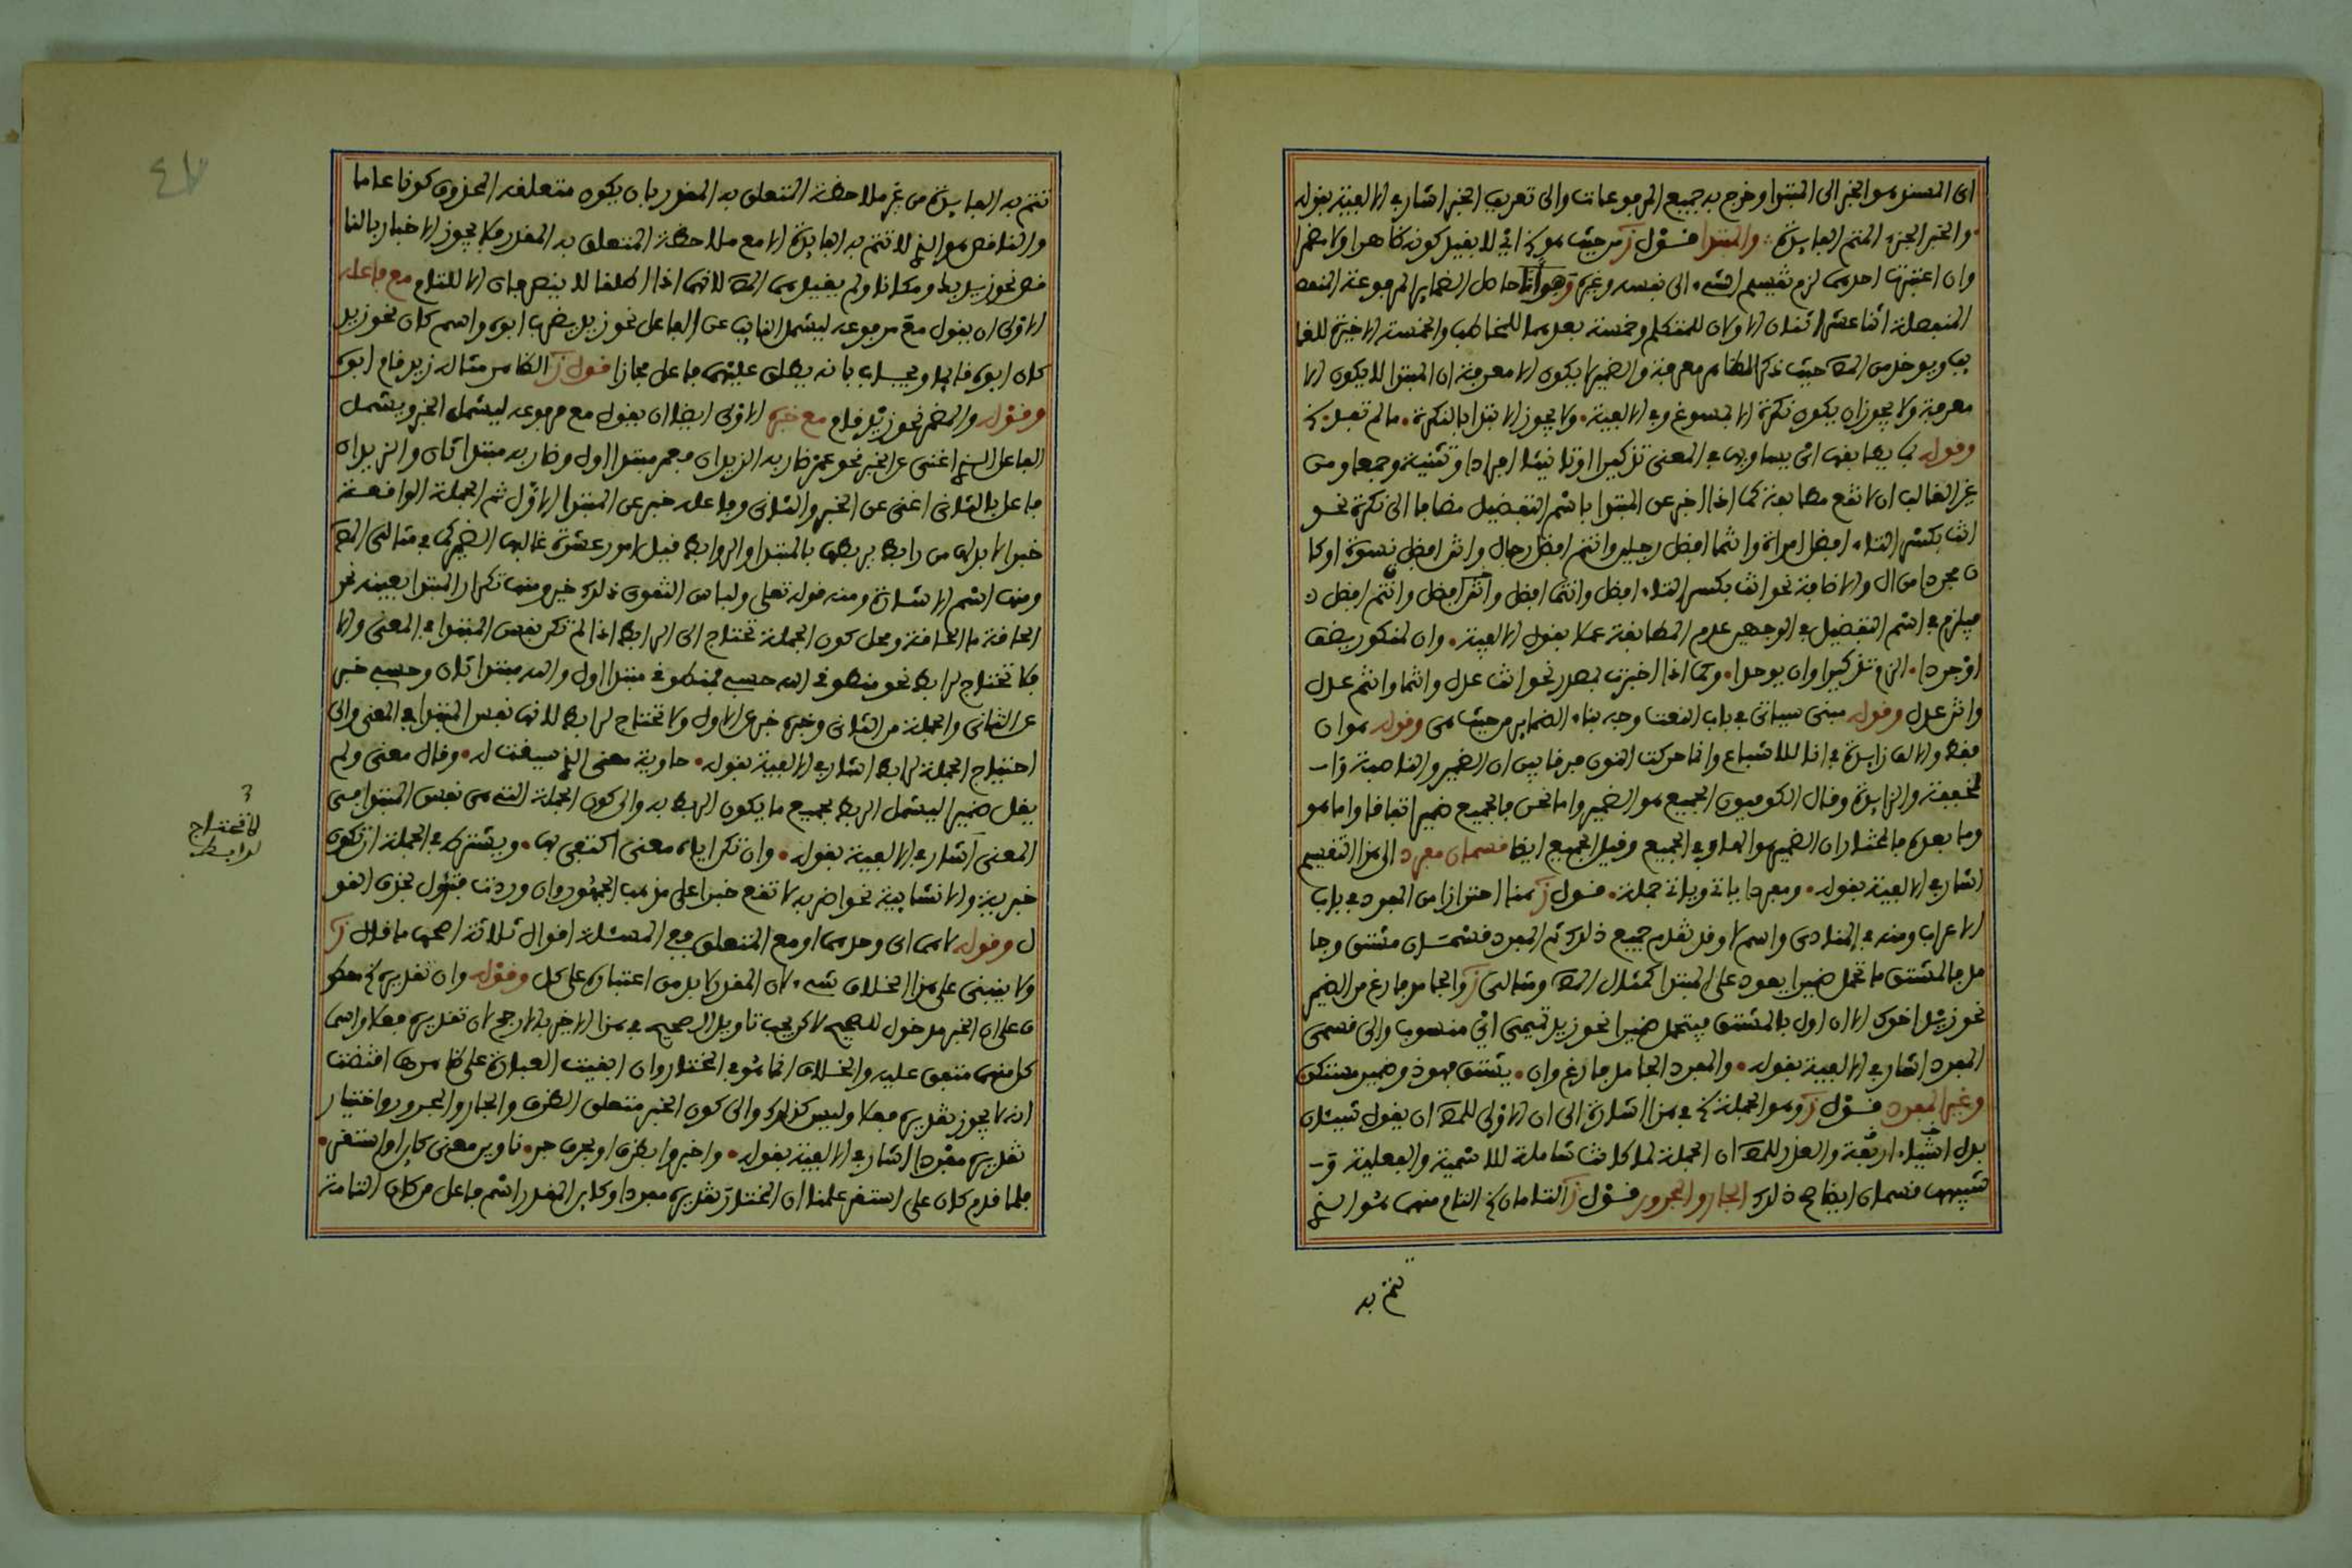 اى المسند هو الخبر الى المبتدا وخرج به جميع المرفوعات والى تعريف الخبر اشار في الالفية بقوله
والخبر الجزء المتم الفايدة والمبتدا قول ز من حيث هو اى لا بقيد كونه ظاهرا ولا مضمرا
وان اعتبرت احدهما لزم تقسيم الشيء الى نفسه وغيره وهو انا حاصل الضماير المرفوعة المنفصلة
المنفصلة اثنا عشر اثنان الاولان للمتكلم وخمسة بعدهما للمخاطب والخمسة الاخيرة للغا
يب ويوخذ من المص حيث ذكر الظاهر معرفة والضمير لا يكون الا معرفة ان المبتدا لا يكون الا
معرفة ولا يجوز ان يكون نكرة الا لمسوغ وفي الالفية ولا يجوز الابتدا بالنكرة ما لم تفد
وقوله يطابقها اى يساويها في المعنى تذكيرا او تانيثا افرادا وتثنية وجمعا ومن
غير الغالب ان لا تقع مطابقة كما اذا اخبر عن المبتدا باسم التفضيل مضافا الى نكرة نحو
انت بكسر التاء افضل امراة وانتما افضل رجلين وانتم افضل رجال وانتن افضل نسوة او كا
ن مجردا من ال والاضافة نحو انت بكسر التاء افضل وانتما افضل وانتن افضل وانتم افضل
فيلزم في اسم التفضيل في الوجهين عدم المطابقة عملا بقول الالفية وان لمنكور يضف
او جردا الزم تذكيرا وان يوحدا وكما اذا اخبرت بمصدر نحو انت عدل وانتما وانتم عدل
وانتن عدل وقوله مبنى سياتي في باب النعت وجه بناء الضماير من حيث هي وقوله هو ان
فقط والالف زايدة في انا للاشباع وانما حركت النون فرقا بين ان الضمير والناصبة
مخففة والزايدة وقال الكوفيون الجميع هو الضمير واما نحن فالجميع ضمير اتفاقا واما هو
وما بعده فالمختار ان الضمير هو الهاء وفي الجميع وقيل الجميع ايضا قسمان مفرد الى هذا التقسيم
اشار في الالفية بقوله ومفردا ياتي وياتي جملة قول ز هنا احترازا من المفرد في باب
الاعراب ومنه في المنادى واسم لا وقد تقدم جميع ذلك ثم المفرد قسمان مشتق وجا
مد فالمشتق ما تحمل ضميرا يعود على المبتدا كمثال المص ومثالى ز والجامد فارغ من الضمير
نحو زيد اخوك الا ان اول بالمشتق فيتحمل ضميرا نحو زيد تميمي اى منسوب والى قسمى
المفرد اشار في الالفية بقوله والمفرد الجامد فارغ وان يشتق فهو ذو ضمير مستكن
وغير المفرد قول ز وهو الجملة في هذا اشارة الى ان الاولى للمص ان يقول شيئان
بدل اشياء اربعة والعذر للمص ان الجملة لما كانت شاملة للاسمية والفعلية
شبهها قسمان ايضا ذلك الجار والمجرور قول ز التامان التام منهما هو الذي
تتم به
٤٧
تتم به الفايدة من غير ملاحظة المتعلق به المقدر بان يكون متعلقه المحذوف كونا عاما
والناقص هو الذي لا تتم به الفايدة الا مع ملاحظة المتعلق به المقدر فلا يجوز الاخبار بالنا
قص نحو زيد بك ومكانا ولم يقيدهما المص لانهما اذا اطلقا لا ينصرفان الا للتام مع فاعله
الاولى ان يقول مع مرفوعه ليشمل النايب عن الفاعل نحو زيد يضرب ابوه واسم كان نحو زيد
كان ابوه قايما ويجاب بانه يطلق عليهما فاعل مجازا قول ز الظاهر مثاله زيد قام ابوه
وقوله والمضمر نحو زيد قام مع خبره الاولى ايضا ان يقول مع مرفوعه ليشمل الخبر ويشمل
الفاعل الذي اغنى عن الخبر نحو عمر ضاربه الزيدان فعمر مبتدا اول وضاربه مبتدا ثان والزيدان
فاعل بالثاني اغنى عن الخبر والثاني وفاعله خبر عن المبتدا الاول ثم الجملة الواقعة
خبرا لابد لها من رابط يربطها بالمبتدا والروابط قيل امور عشرة غالبها الضمير كما في مثالى المص
ومنها اسم الاشارة ومنه قوله تعلى ولباس التقوى ذلك خير ومنها تكرار المبتدا بعينه نحو
الحاقة ما الحاقة ومحل كون الجملة تحتاج الى الرابط اذا لم تكن نفس المبتدا في المعنى والا
فلا تحتاج لرابط نحو منطوقي الله حسبي فمنطوقي مبتدا اول والله مبتدا ثان وحسبي خبر
عن الثاني والجملة من الثاني وخبره خبر عن الاول ولا تحتاج لرابط لانها نفس المبتدا في المعنى والى
احتياج الجملة لرابط اشار في الالفية بقوله حاوية معنى الذي سيقت له وقال معنى ولم
يقل ضمير ليشمل الربط بجميع ما يكون الربط به والى كون الجملة التي هي نفس المبتدا في
المعنى اشار في الالفية بقوله وان تكن اياه معنى اكتفى بها ويشترط في الجملة ان تكون
خبرية والانشايية نحو اضربه لا تقع خبرا على مذهب الجمهور وان وردت فتؤول بحذف القو
ل وقوله لا هى اى وحدها او مع المتعلق في المسئلة اقوال ثلاثة اصحها ما قال ز
ولا ينبنى على هذا الخلاف شيء لان المقدر لا بد من اعتباره على كل وقوله وان تقديره
ن على ان الخبر مدخول للصحيح لاكن يجب تاويل الصحيح في هذا الاخير بالارجح لان تقديره فعلا واسما
كل منهما متفق عليه والخلاف انما هو في المختار وان ابقيت العبارة على ظاهرها اقتضت
انه لا يجوز تقديره فعلا وليس كذلك والى كون الخبر متعلق الظرف والجار والمجرور واختيار
تقديره مفردا اشار في الالفية بقوله واخبروا بظرف او بحرف جر ناوين معنى كاين او استقر
فلما قدم كان على استقر علمنا ان المختار تقديره مفردا وكاين المقدر اسم فاعل من كان التامة
لا تحتاج
لرابط